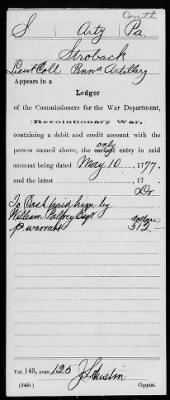 Contl.
S Arty Pa.
Stroback
Lieut Coll. Penna Artillery
Appears in a
Ledger
of the Commissioners for the War Department,
Revolutionary War,
containing a debit and credit account with the
person named above, the earliest only entry in said
account being dated May 10, 1777.
and the latest , 17 .
Dr.
To Cash paid him by
William Palfrey Esqr dollars
p warrant 512.
Vol. 143, page 125
(543c) Copyist.